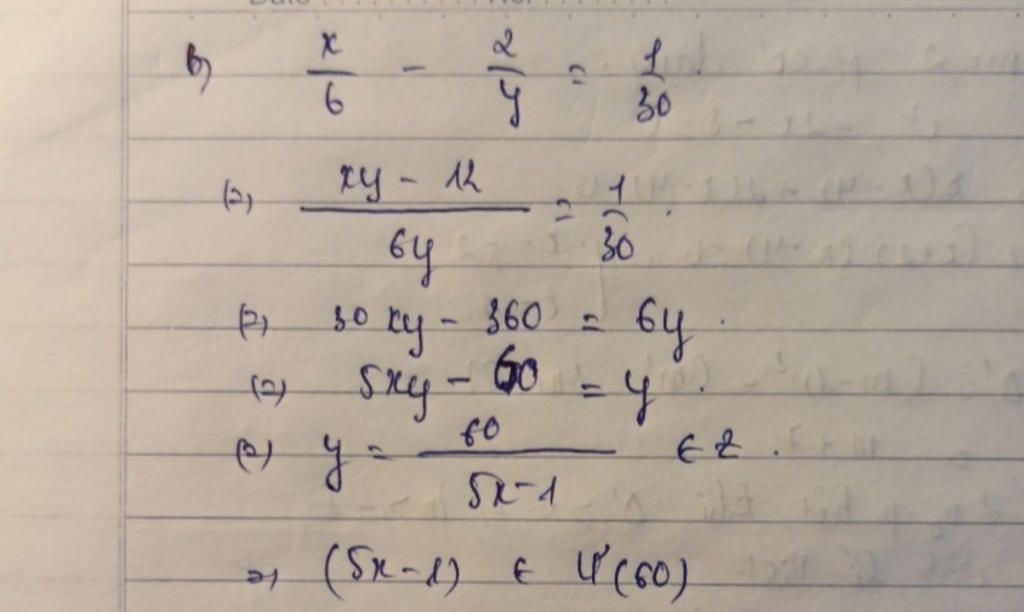 b) x/6 - 2/y = 1/30
(=) (xy - 12)/6y = 1/30 .
(=) 30xy - 360 = 6y .
(=) 5xy - 60 = y .
(=) y = 60/(5x-1) ∈ Z .
=) (5x-1) ∈ Ư(60)